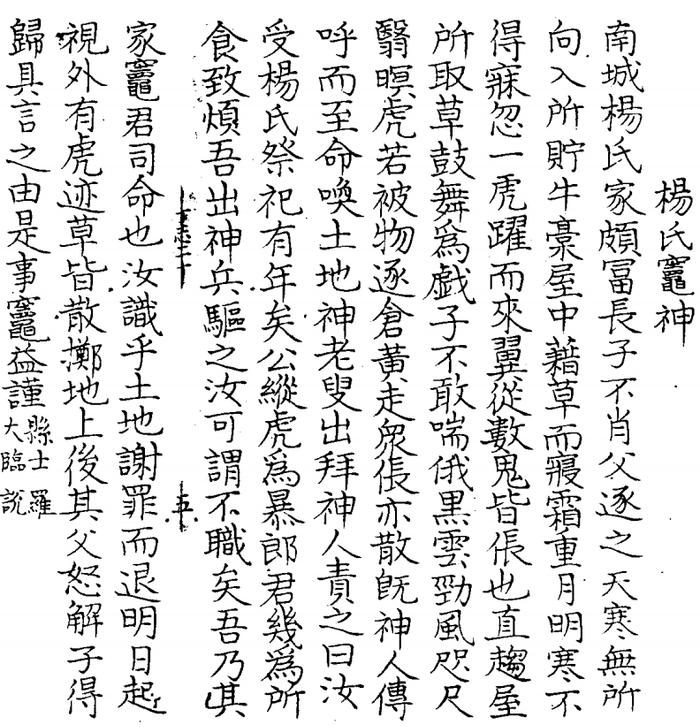 楊氏竈神
南城楊氏家頗冨長子不肖父逐之天寒無所
向入所貯牛藁屋中藉草而寢霜重月明寒不
得寐忽一虎躍而來翼從數鬼皆倀也直趨屋
所取草鼓舞爲戯子不敢喘俄黒雲勁風咫尺
翳暝虎若被物逐倉黃走衆倀亦散旣神人傳
呼而至命喚土地神老叟出拜神人責之曰汝
受楊氏祭祀有年矣公縱虎爲暴郎君幾爲所
食致煩吾出神兵驅之汝可謂不職矣吾乃其
家竈君司命也汝識乎土地謝罪而退明日起
視外有虎迹草皆散擲地上後其父怒解子得
歸具言之由是事竈益謹
縣士羅
大臨說